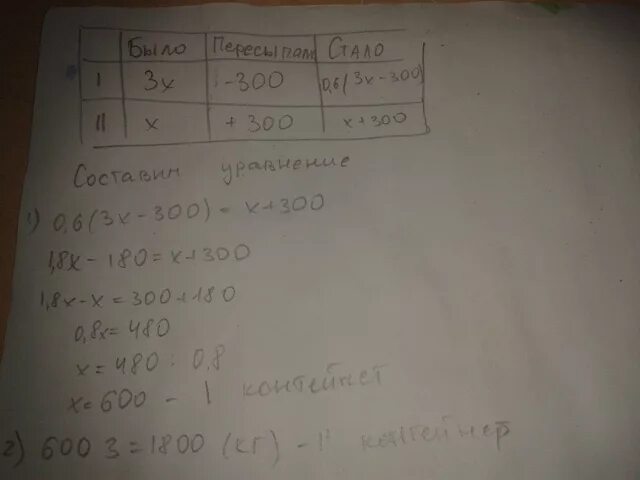 Было Пересыпали Стало
I 3х -300 0,6(3х-300)
II х +300 х+300
Составим уравнение
1) 0,6(3х-300)=х+300
1,8х-180=х+300
1,8х-х=300+180
0,8х=480
х=480:0,8
х=600 - 1 контейнет
2) 600 3=1800 (кг) - 11 контейнер